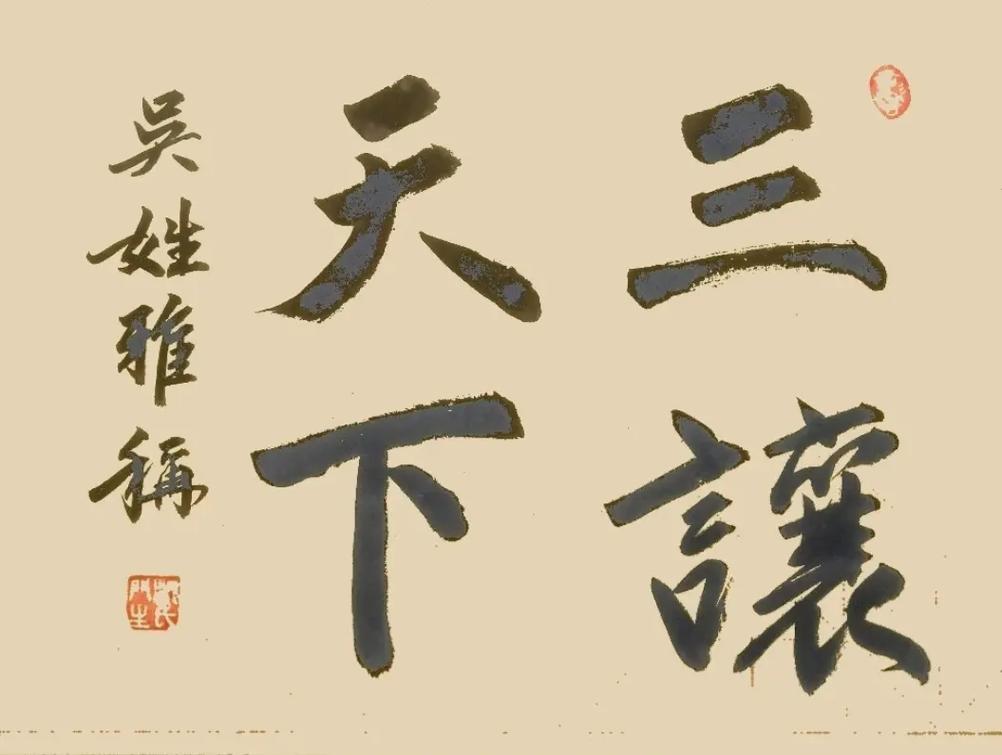 三讓
天下
吳姓雅稱